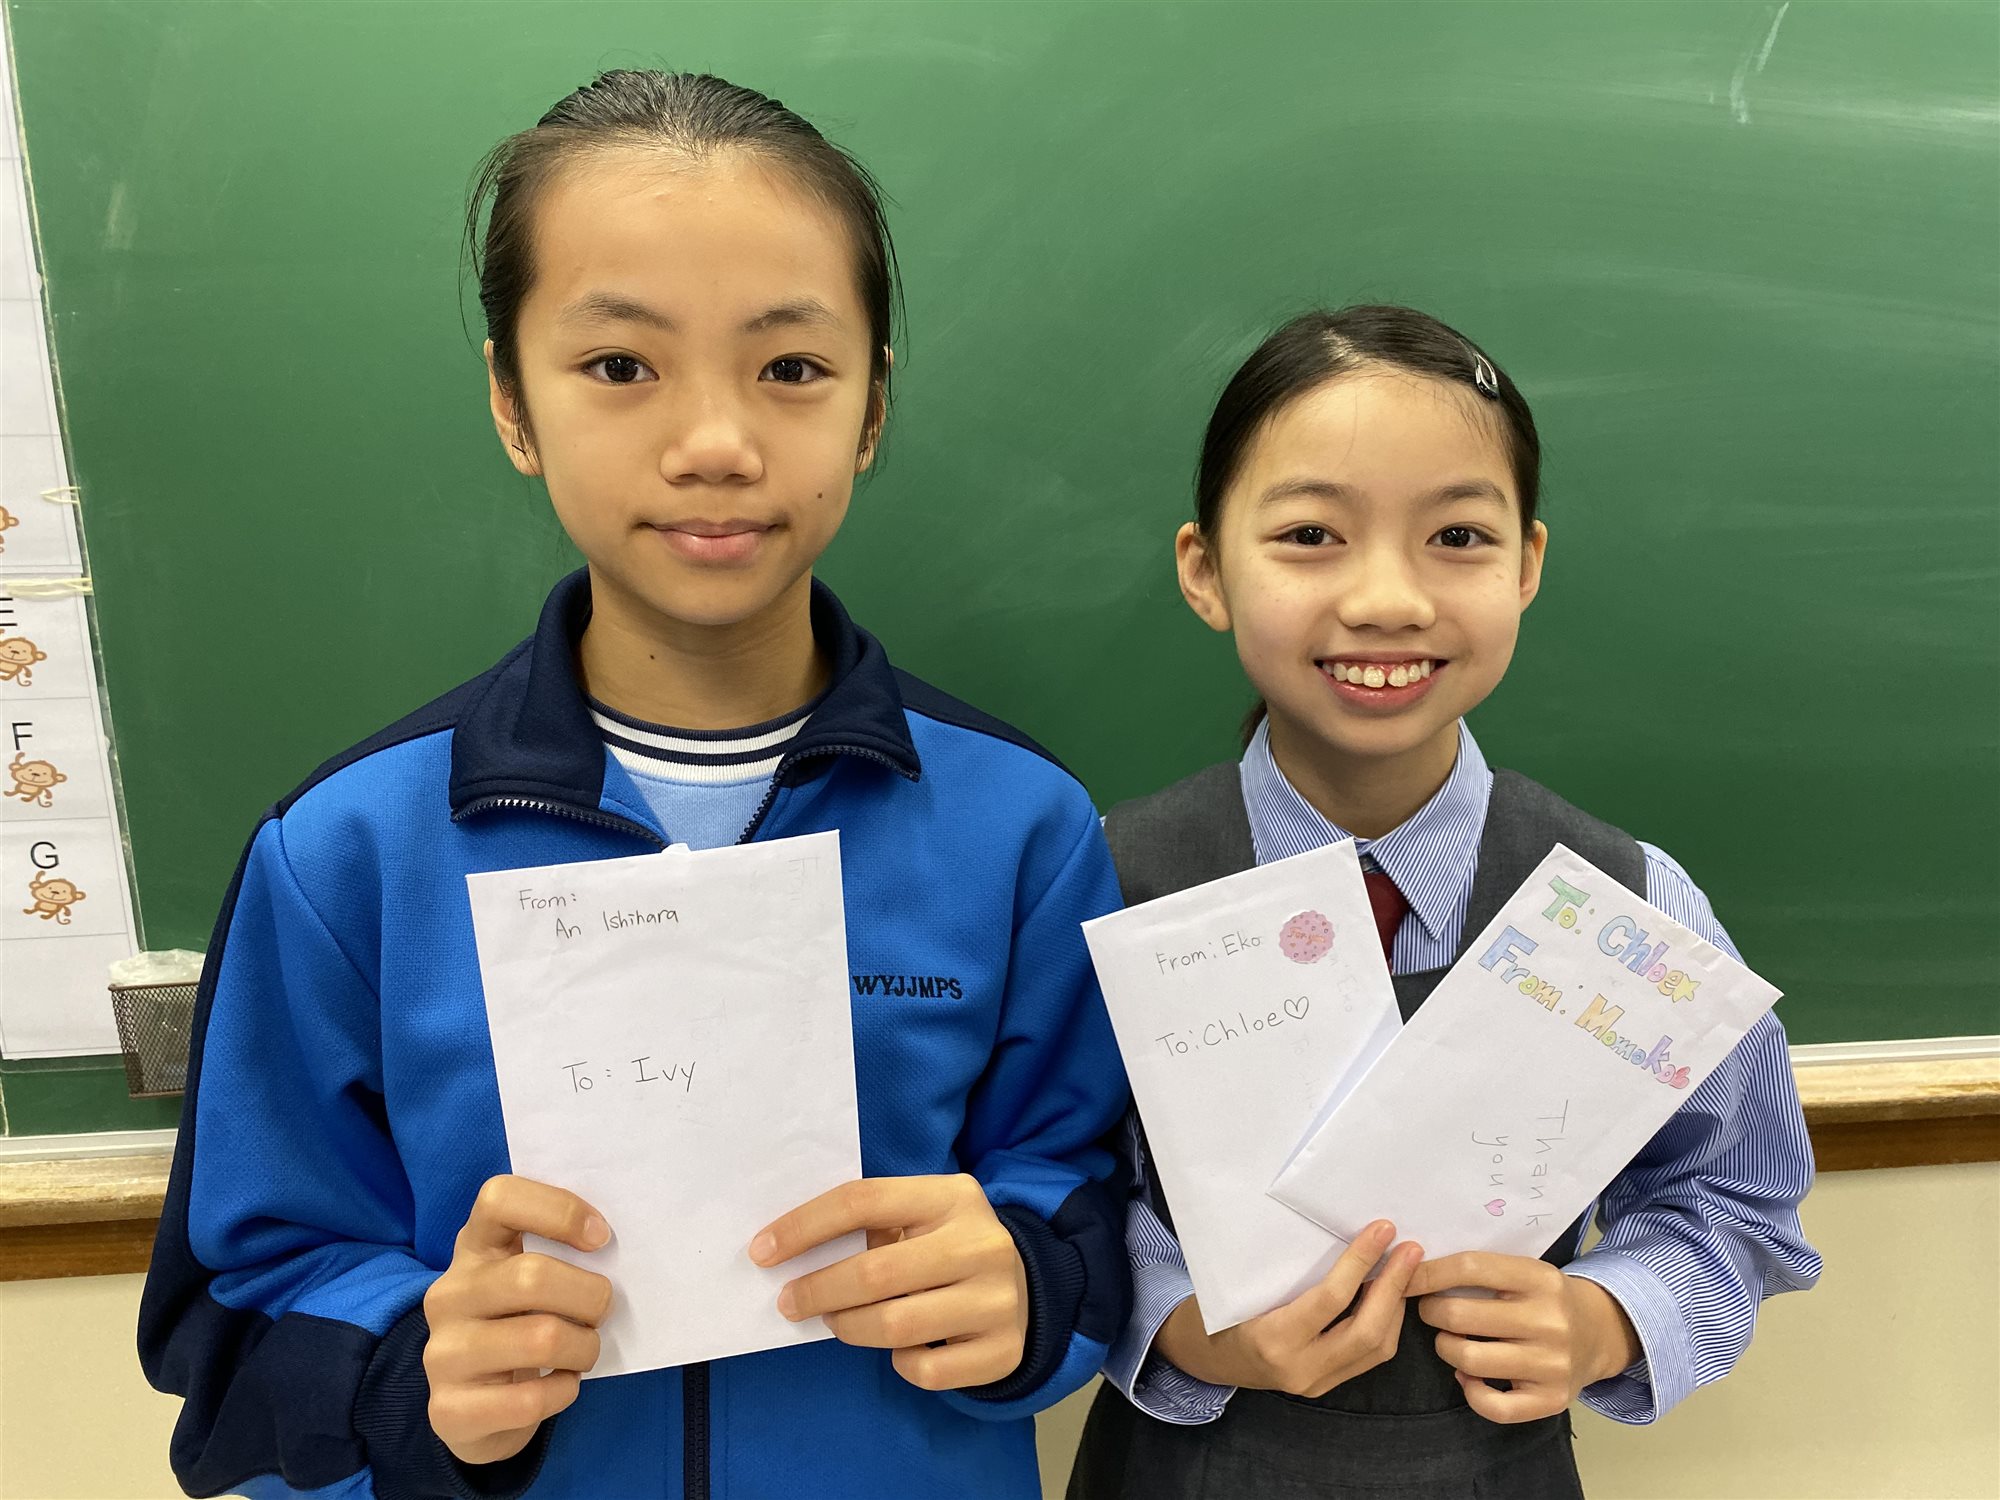 E
F
G
From:
An Ishihara
To: Ivy
WYJJMPS
From: Eko
For you
To: Chloe♡
To: Chloe
From: Momoko
Thank
you